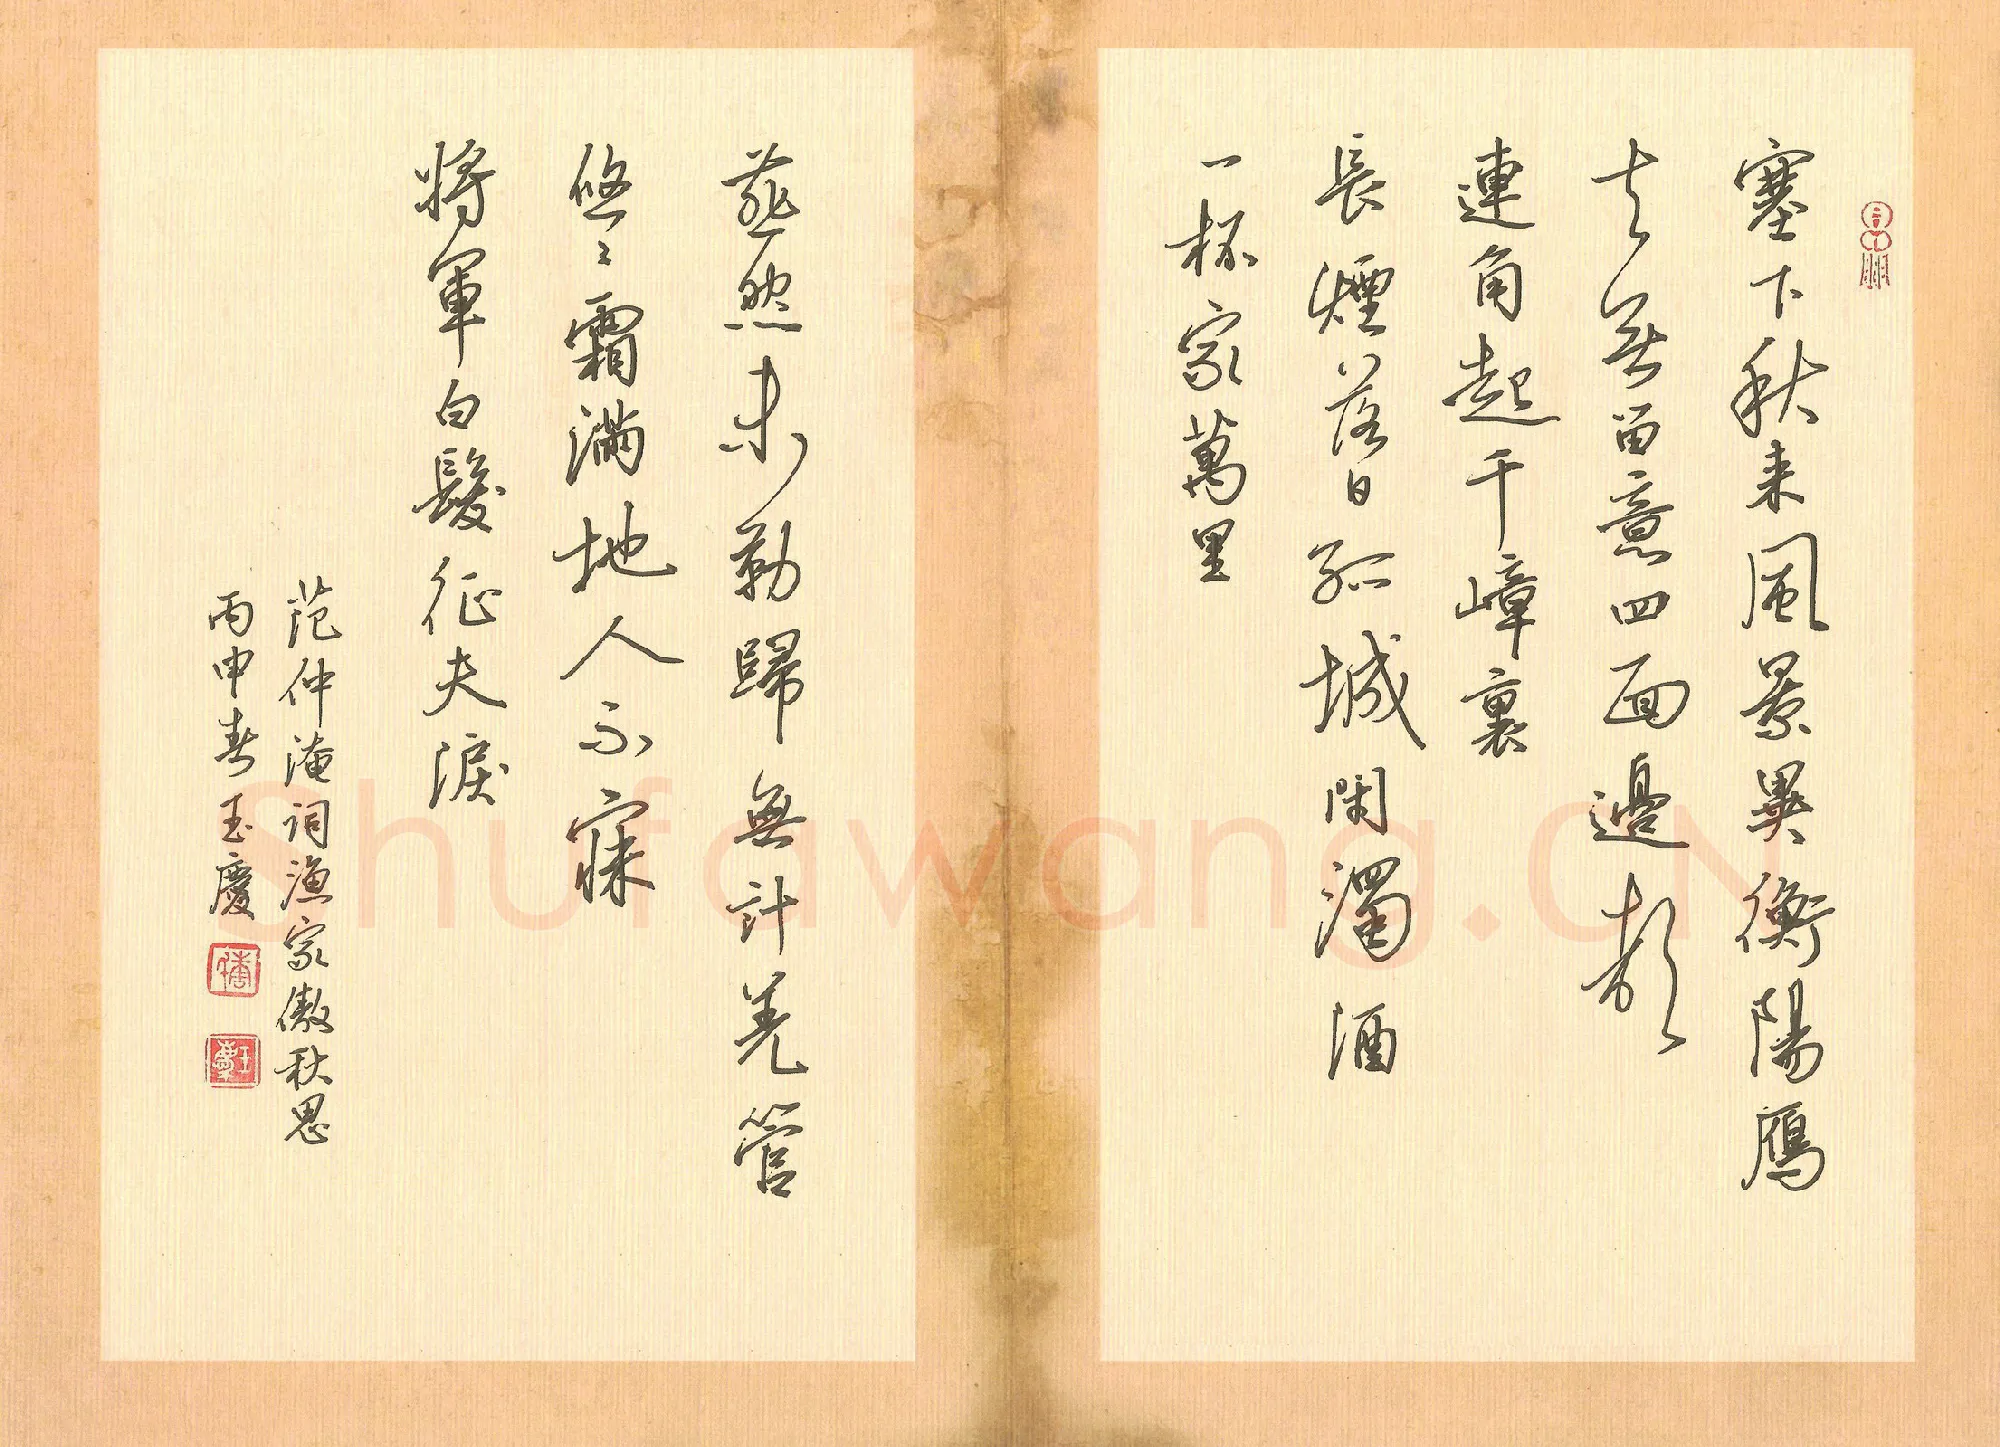 塞下秋来風景異衡陽雁
去無留意四面邊聲
連角起千嶂裏
長煙落日孤城閉濁酒
一杯家萬里
燕然未勒歸無計羌管
悠々霜滿地人不寐
將軍白髮征夫淚
范仲淹詞漁家傲秋思
丙申春玉慶
Shufawang.CN